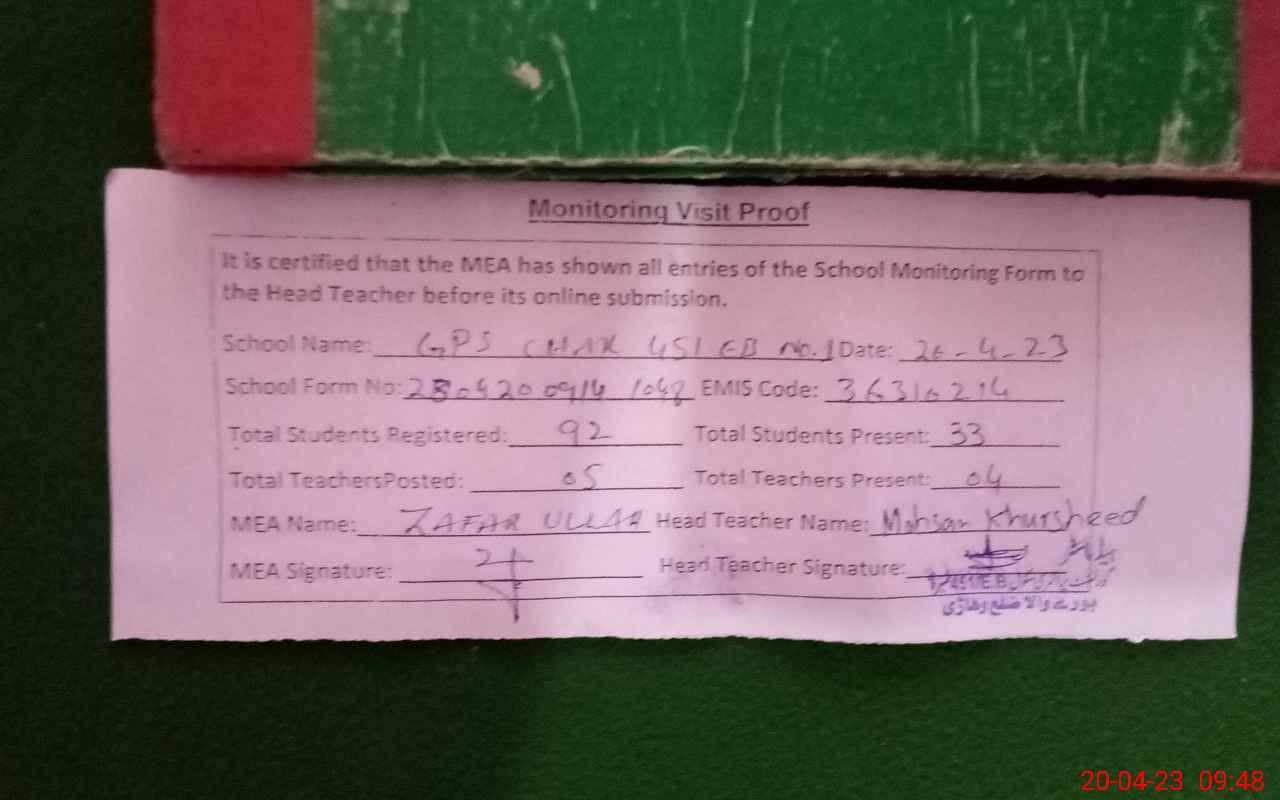 Monitoring Visit Proof
It is certified that the MEA has shown all entries of the School Monitoring Form to
the Head Teacher before its online submission.
School Name: GPS CHAK 451 EB No.1 Date: 20-4-23
School Form No: 2304200914 1048 EMIS Code: 36310214
Total Students Registered: 92 Total Students Present: 33
Total TeachersPosted: 05 Total Teachers Present: 04
MEA Name: ZAFAR ULLAH Head Teacher Name: Mohsan Khursheed
MEA Signature: Head Teacher Signature:
ہیڈ ماسٹر
451/E.B
بورے والا ضلع وہاڑی
20-04-23 09:48